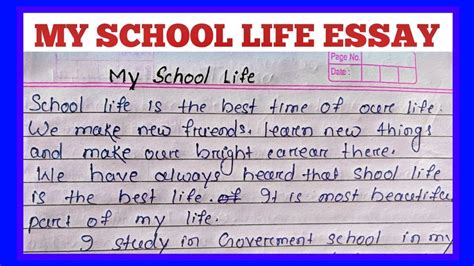 MY SCHOOL LIFE ESSAY
Page No.
Date :
My School Life
School life is the best time of our life.
We make new friends, learn new things
and make our bright carrear there.
We have always heard that shool life
is the best life. of It is most beautiful
part of my life.
I study in Government school in my